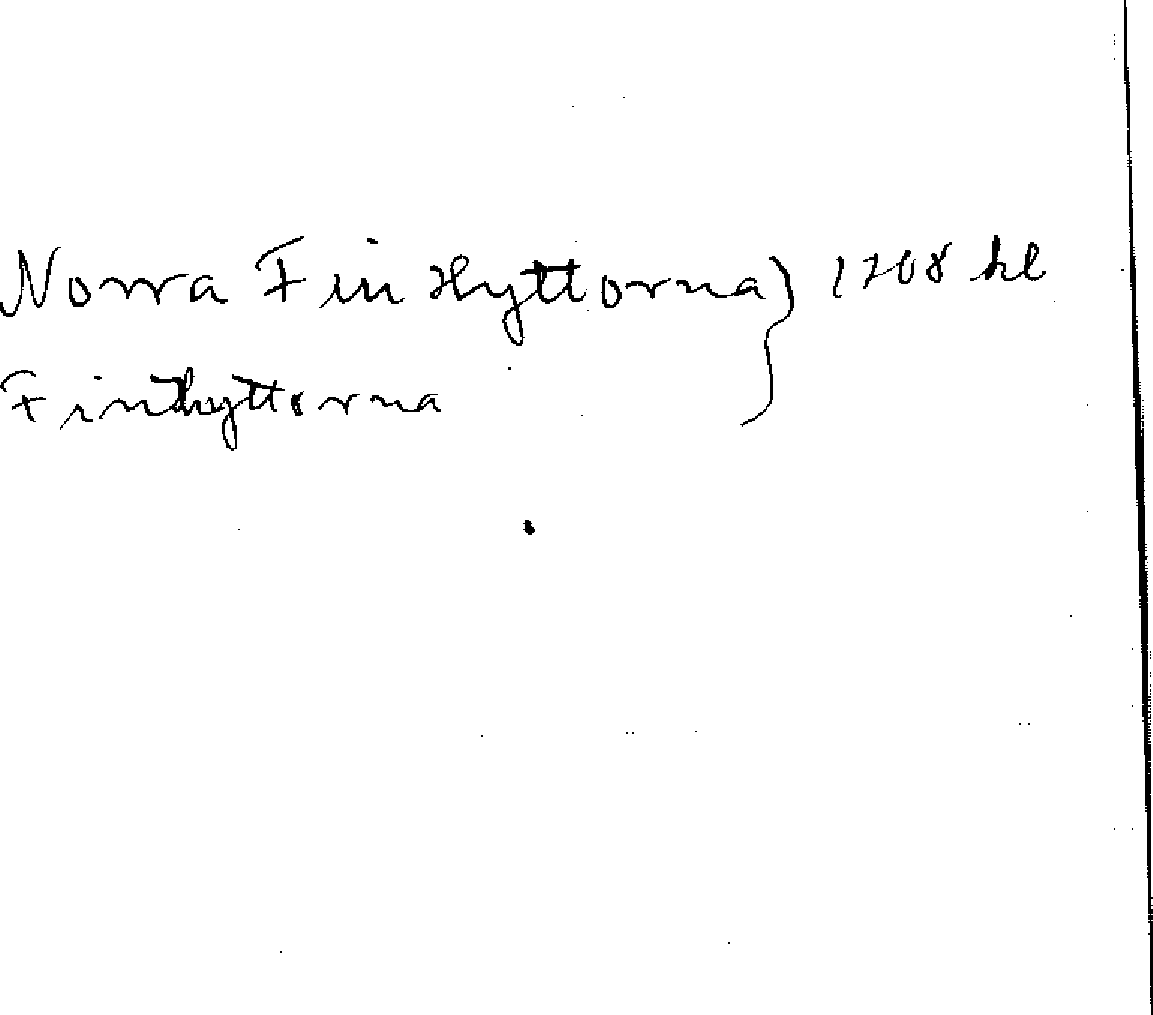 Norra Finnhyttorna } 1708 hl
Finnhyttorna